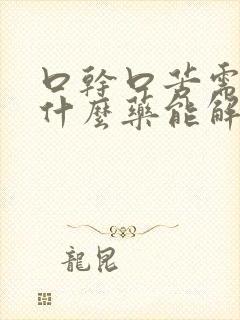 口幹口苦需
什麼藥能解
龍昆